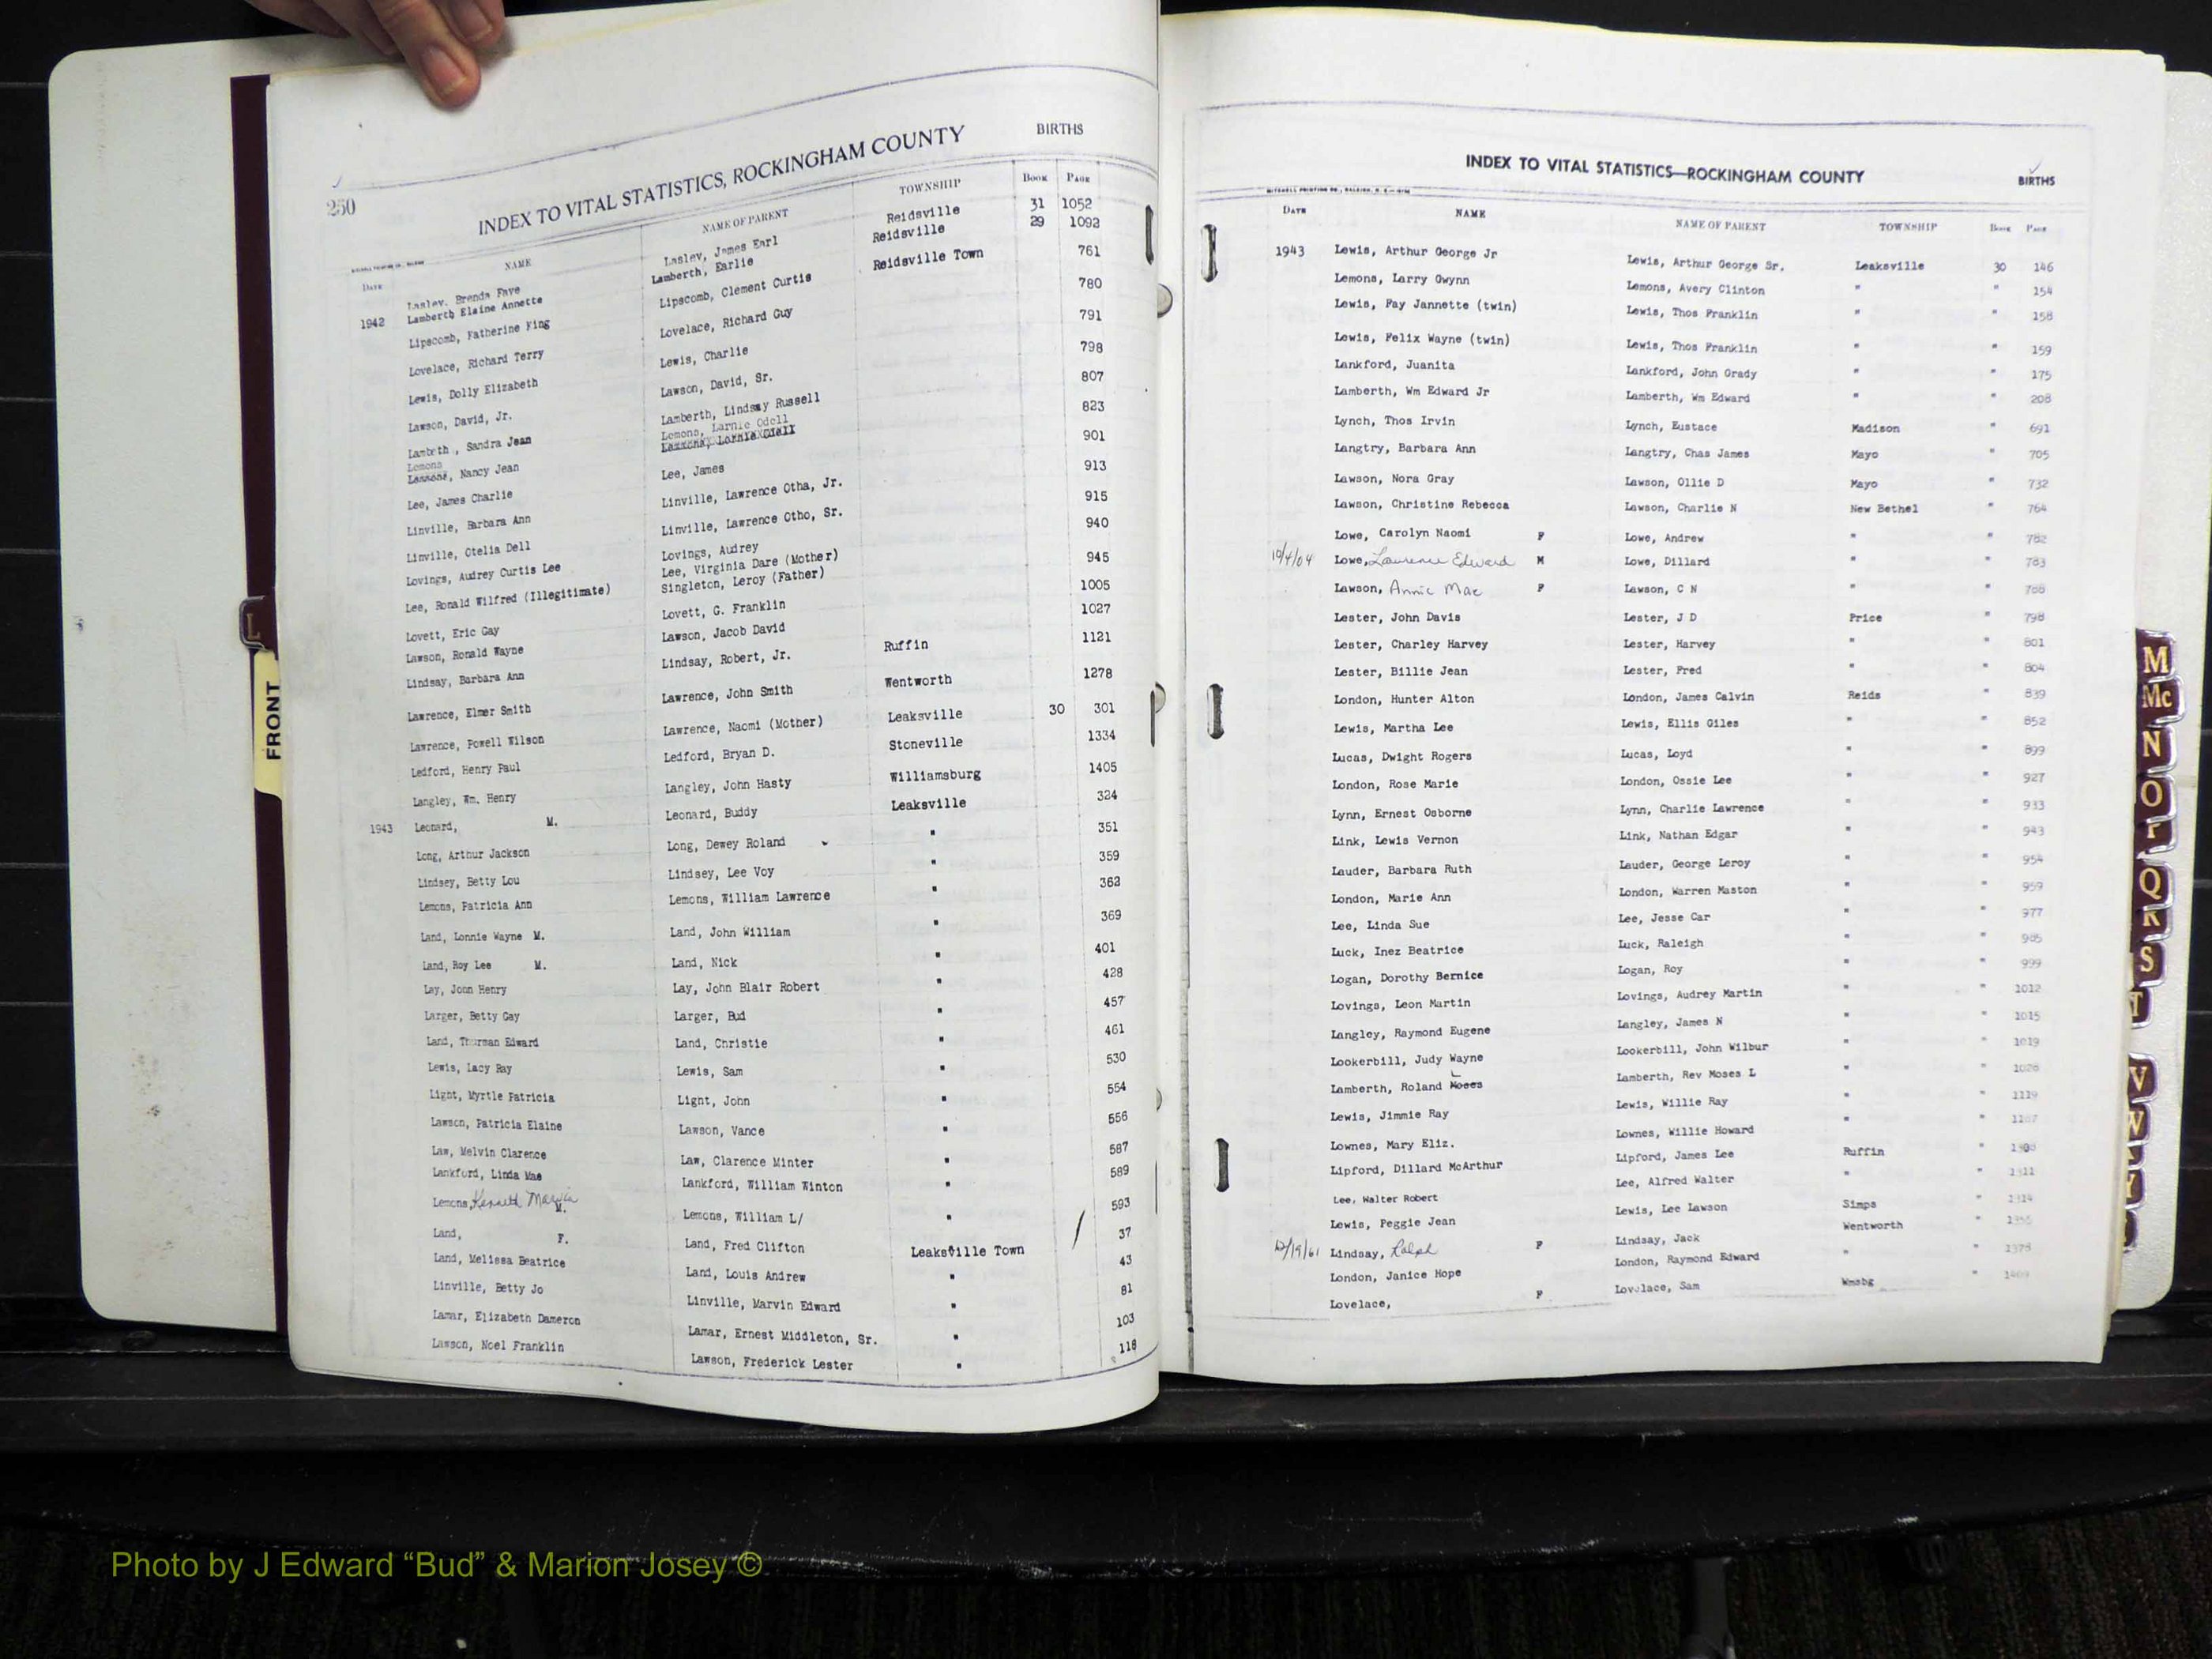 250
INDEX TO VITAL STATISTICS, ROCKINGHAM COUNTY BIRTHS
DATE NAME NAME OF PARENT TOWNSHIP BOOK PAGE
Lasley, Brenda Faye Lasley, James Earl Reidsville 31 1052
1942 Lamberth Elaine Annette Lamberth, Earlie Reidsville 29 1092
Lipscomb, Fatherine King Lipscomb, Clement Curtis Reidsville Town 761
Lovelace, Richard Terry Lovelace, Richard Guy 780
Lewis, Dolly Elizabeth Lewis, Charlie 791
Lawson, David, Jr. Lawson, David, Sr. 798
Lambeth, Sandra Jean Lamberth, Lindsay Russell 807
Lemons Lemons, Larnie Odell
Lemmons, Nancy Jean 823
Lee, James Charlie Lee, James 901
Linville, Barbara Ann Linville, Lawrence Otha, Jr. 913
Linville, Otelia Dell Linville, Lawrence Otho, Sr. 915
Lovings, Audrey Curtis Lee Lovings, Audrey 940
Lee, Ronald Wilfred (Illegitimate) Lee, Virginia Dare (Mother) 945
Singleton, Leroy (Father)
Lovett, Eric Gay Lovett, G. Franklin 1005
Lawson, Ronald Wayne Lawson, Jacob David 1027
Lindsay, Barbara Ann Lindsay, Robert, Jr. Ruffin 1121
Lawrence, Elmer Smith Lawrence, John Smith Wentworth 1278
Lawrence, Powell Wilson Lawrence, Naomi (Mother) Leaksville 30 301
Ledford, Henry Paul Ledford, Bryan D. Stoneville 1334
Langley, Wm. Henry Langley, John Hasty Williamsburg 1405
1943 Leonard, M. Leonard, Buddy Leaksville 324
Long, Arthur Jackson Long, Dewey Roland " 351
Lindsey, Betty Lou Lindsey, Lee Voy " 359
Lemons, Patricia Ann Lemons, William Lawrence " 362
Land, Lonnie Wayne M. Land, John William " 369
Land, Roy Lee M. Land, Nick " 401
Lay, John Henry Lay, John Blair Robert " 428
Larger, Betty Gay Larger, Bud " 457
Land, Thurman Edward Land, Christie " 461
Lewis, Lacy Ray Lewis, Sam " 530
Light, Myrtle Patricia Light, John " 554
Lawson, Patricia Elaine Lawson, Vance " 556
Law, Melvin Clarence Law, Clarence Minter " 587
Lankford, Linda Mae Lankford, William Winton " 589
Lemons, Kenneth Marvin M. Lemons, William L/ " 593
Land, F. Land, Fred Clifton Leaksville Town / 37
Land, Melissa Beatrice Land, Louis Andrew " 43
Linville, Betty Jo Linville, Marvin Edward " 81
Lamar, Elizabeth Dameron Lamar, Ernest Middleton, Sr. " 103
Lawson, Noel Franklin Lawson, Frederick Lester " 118
L
FRONT
INDEX TO VITAL STATISTICS—ROCKINGHAM COUNTY BIRTHS
DATE NAME NAME OF PARENT TOWNSHIP BOOK PAGE
1943 Lewis, Arthur George Jr Lewis, Arthur George Sr. Leaksville 30 146
Lemons, Larry Gwynn Lemons, Avery Clinton " " 154
Lewis, Fay Jannette (twin) Lewis, Thos Franklin " " 158
Lewis, Felix Wayne (twin) Lewis, Thos Franklin " " 159
Lankford, Juanita Lankford, John Grady " " 175
Lamberth, Wm Edward Jr Lamberth, Wm Edward " " 208
Lynch, Thos Irvin Lynch, Eustace Madison " 691
Langtry, Barbara Ann Langtry, Chas James Mayo " 705
Lawson, Nora Gray Lawson, Ollie D Mayo " 732
Lawson, Christine Rebecca Lawson, Charlie N New Bethel " 764
Lowe, Carolyn Naomi F Lowe, Andrew " " 782
10/4/04 Lowe, Lawrence Edward M Lowe, Dillard " " 783
Lawson, Annie Mae F Lawson, C N " " 788
Lester, John Davis Lester, J D Price " 798
Lester, Charley Harvey Lester, Harvey " " 801
Lester, Billie Jean Lester, Fred " " 804
London, Hunter Alton London, James Calvin Reids " 839
Lewis, Martha Lee Lewis, Ellis Giles " " 852
Lucas, Dwight Rogers Lucas, Loyd " " 899
London, Rose Marie London, Ossie Lee " " 927
Lynn, Ernest Osborne Lynn, Charlie Lawrence " " 933
Link, Lewis Vernon Link, Nathan Edgar " " 943
Lauder, Barbara Ruth Lauder, George Leroy " " 954
London, Marie Ann London, Warren Maston " " 959
Lee, Linda Sue Lee, Jesse Car " " 977
Luck, Inez Beatrice Luck, Raleigh " " 985
Logan, Dorothy Bernice Logan, Roy " " 999
Lovings, Leon Martin Lovings, Audrey Martin " " 1012
Langley, Raymond Eugene Langley, James N " " 1015
Lookerbill, Judy Wayne Lookerbill, John Wilbur " " 1019
Lamberth, Roland Moses L Lamberth, Rev Moses L " "
Lewis, Jimmie Ray Lewis, Willie Ray " " 1119
Lownes, Mary Eliz. Lownes, Willie Howard " "
Lipford, Dillard McArthur Lipford, James Lee Ruffin "
Lee, Walter Robert Lee, Alfred Walter " " 1311
Lewis, Peggie Jean Lewis, Lee Lawson Simps " 1314
12/19/61 Lindsay, Ralph F Lindsay, Jack Wentworth "
London, Janice Hope London, Raymond Edward " " 1378
Lovelace, F Lovelace, Sam Wmsbg "
M
Mc
N
O
P
Q
R
S
T
V
W
Y
Photo by J Edward “Bud” & Marion Josey ©